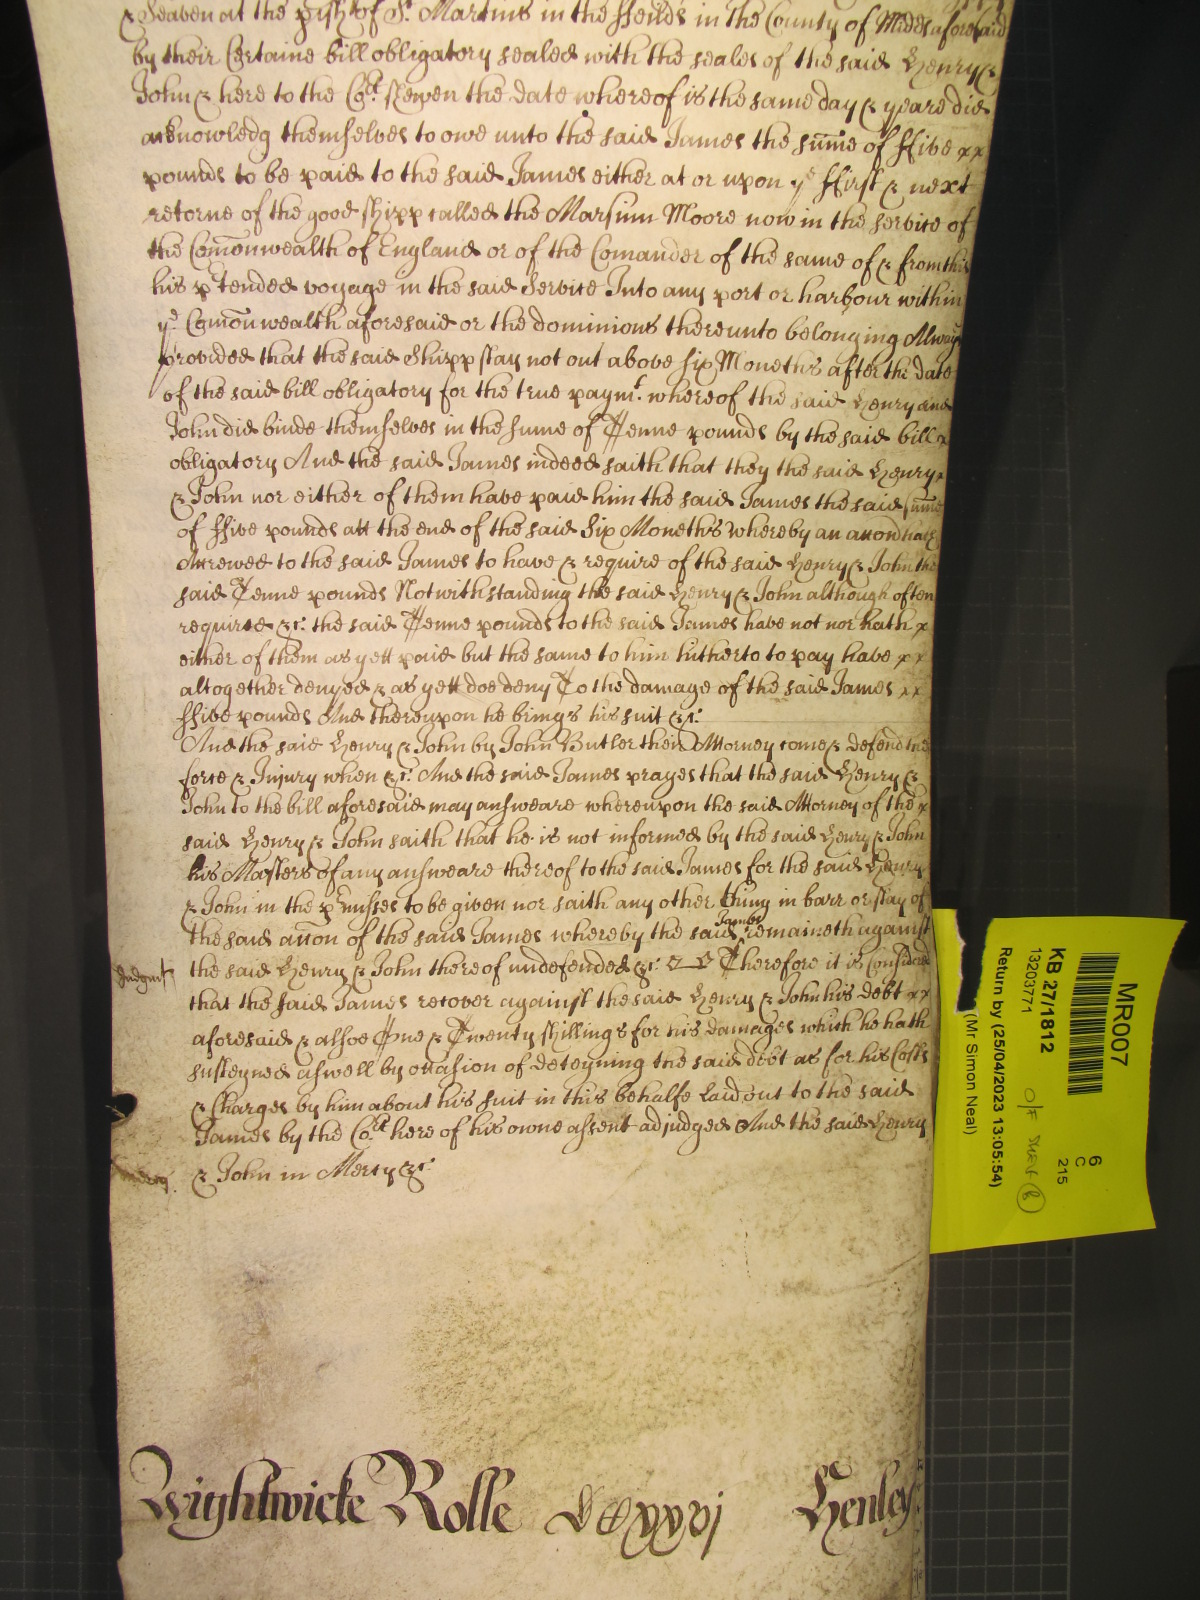 & Seaven at the pish of St. Martins in the ffeilds in the County of Midds aforesaid
by their Certaine bill obligatory sealed with the seales of the said Henry &
John & here to the Cort. shewen the date whereof is the same day & yeare did
acknowledg themselves to owe unto the said James the sum̄e of ffive x x
pounds to be paid to the said James either at or upon ye ffirst & next
retorne of the good shipp called the Marsium Moore now in the service of
the Com̄onwealth of England or of the Comander of the same of & from this
his prtended voyage in the said Service Into any port or harbour within
ye Com̄onwealth aforesaid or the dominions thereunto belonging Alwayes
provided that the said Shipp stay not out above six Moneths after the date
of the said bill obligatory for the true paymt. whereof the said Henry and
John did binde themselves in the sume of Tenne pounds by the said bill x
obligatory And the said James indeed saith that they the said Henry x
& John nor either of them have paid him the said James the said sum̄e
of ffive pounds att the end of the said Six Moneths Whereby an acc̄on hath
Accrewed to the said James to have & require of the said Henry & John the
said Tenne pounds Notwithstanding the said Henry & John although often
required &c. the said Tenne pounds to the said James have not nor hath x
either of them as yett paid but the same to him hitherto to pay have x x
altogether denyed & as yett doe deny To the damage of the said James x x
ffive pounds And thereupon he brings his suit &c:
And the said Henry & John by John Butler their Attorney come & defend the
force & Injury when &c. And the said James prayes that the said Henry &
John to the bill aforesaid may answeare whereupon the said Attorney of the x
said Henry & John saith that he is not informed by the said Henry & John
his Masters of any answeare thereof to the said James for the said Henry
& John in the prmisses to be given nor saith any other thing in barr or stay of
the said acc̄on of the said James whereby the said James remaineth against
Judgmt the said Henry & John thereof undefended &c. Therefore it is Considered
that the said James recover against the said Henry & John his debt x x
aforesaid & alsoe One & Twenty shillings for his damages which he hath
susteyned aswell by occasion of deteyning the said debt as for his Costs
& Charges by him about his suit in this behalfe laid out to the said
James by the Cort here of his owne assent adjudged And the said Henry
mercy. & John in Mercy &c.
Wightwicke Rolle CCxxvj Henley
MR007
KB 27/1812
13203771
Return by (25/04/2023 13:05:54)
(Mr Simon Neal)
6
C
215